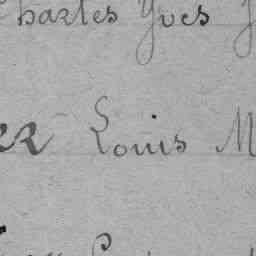 Charles Yves J
er Louis M